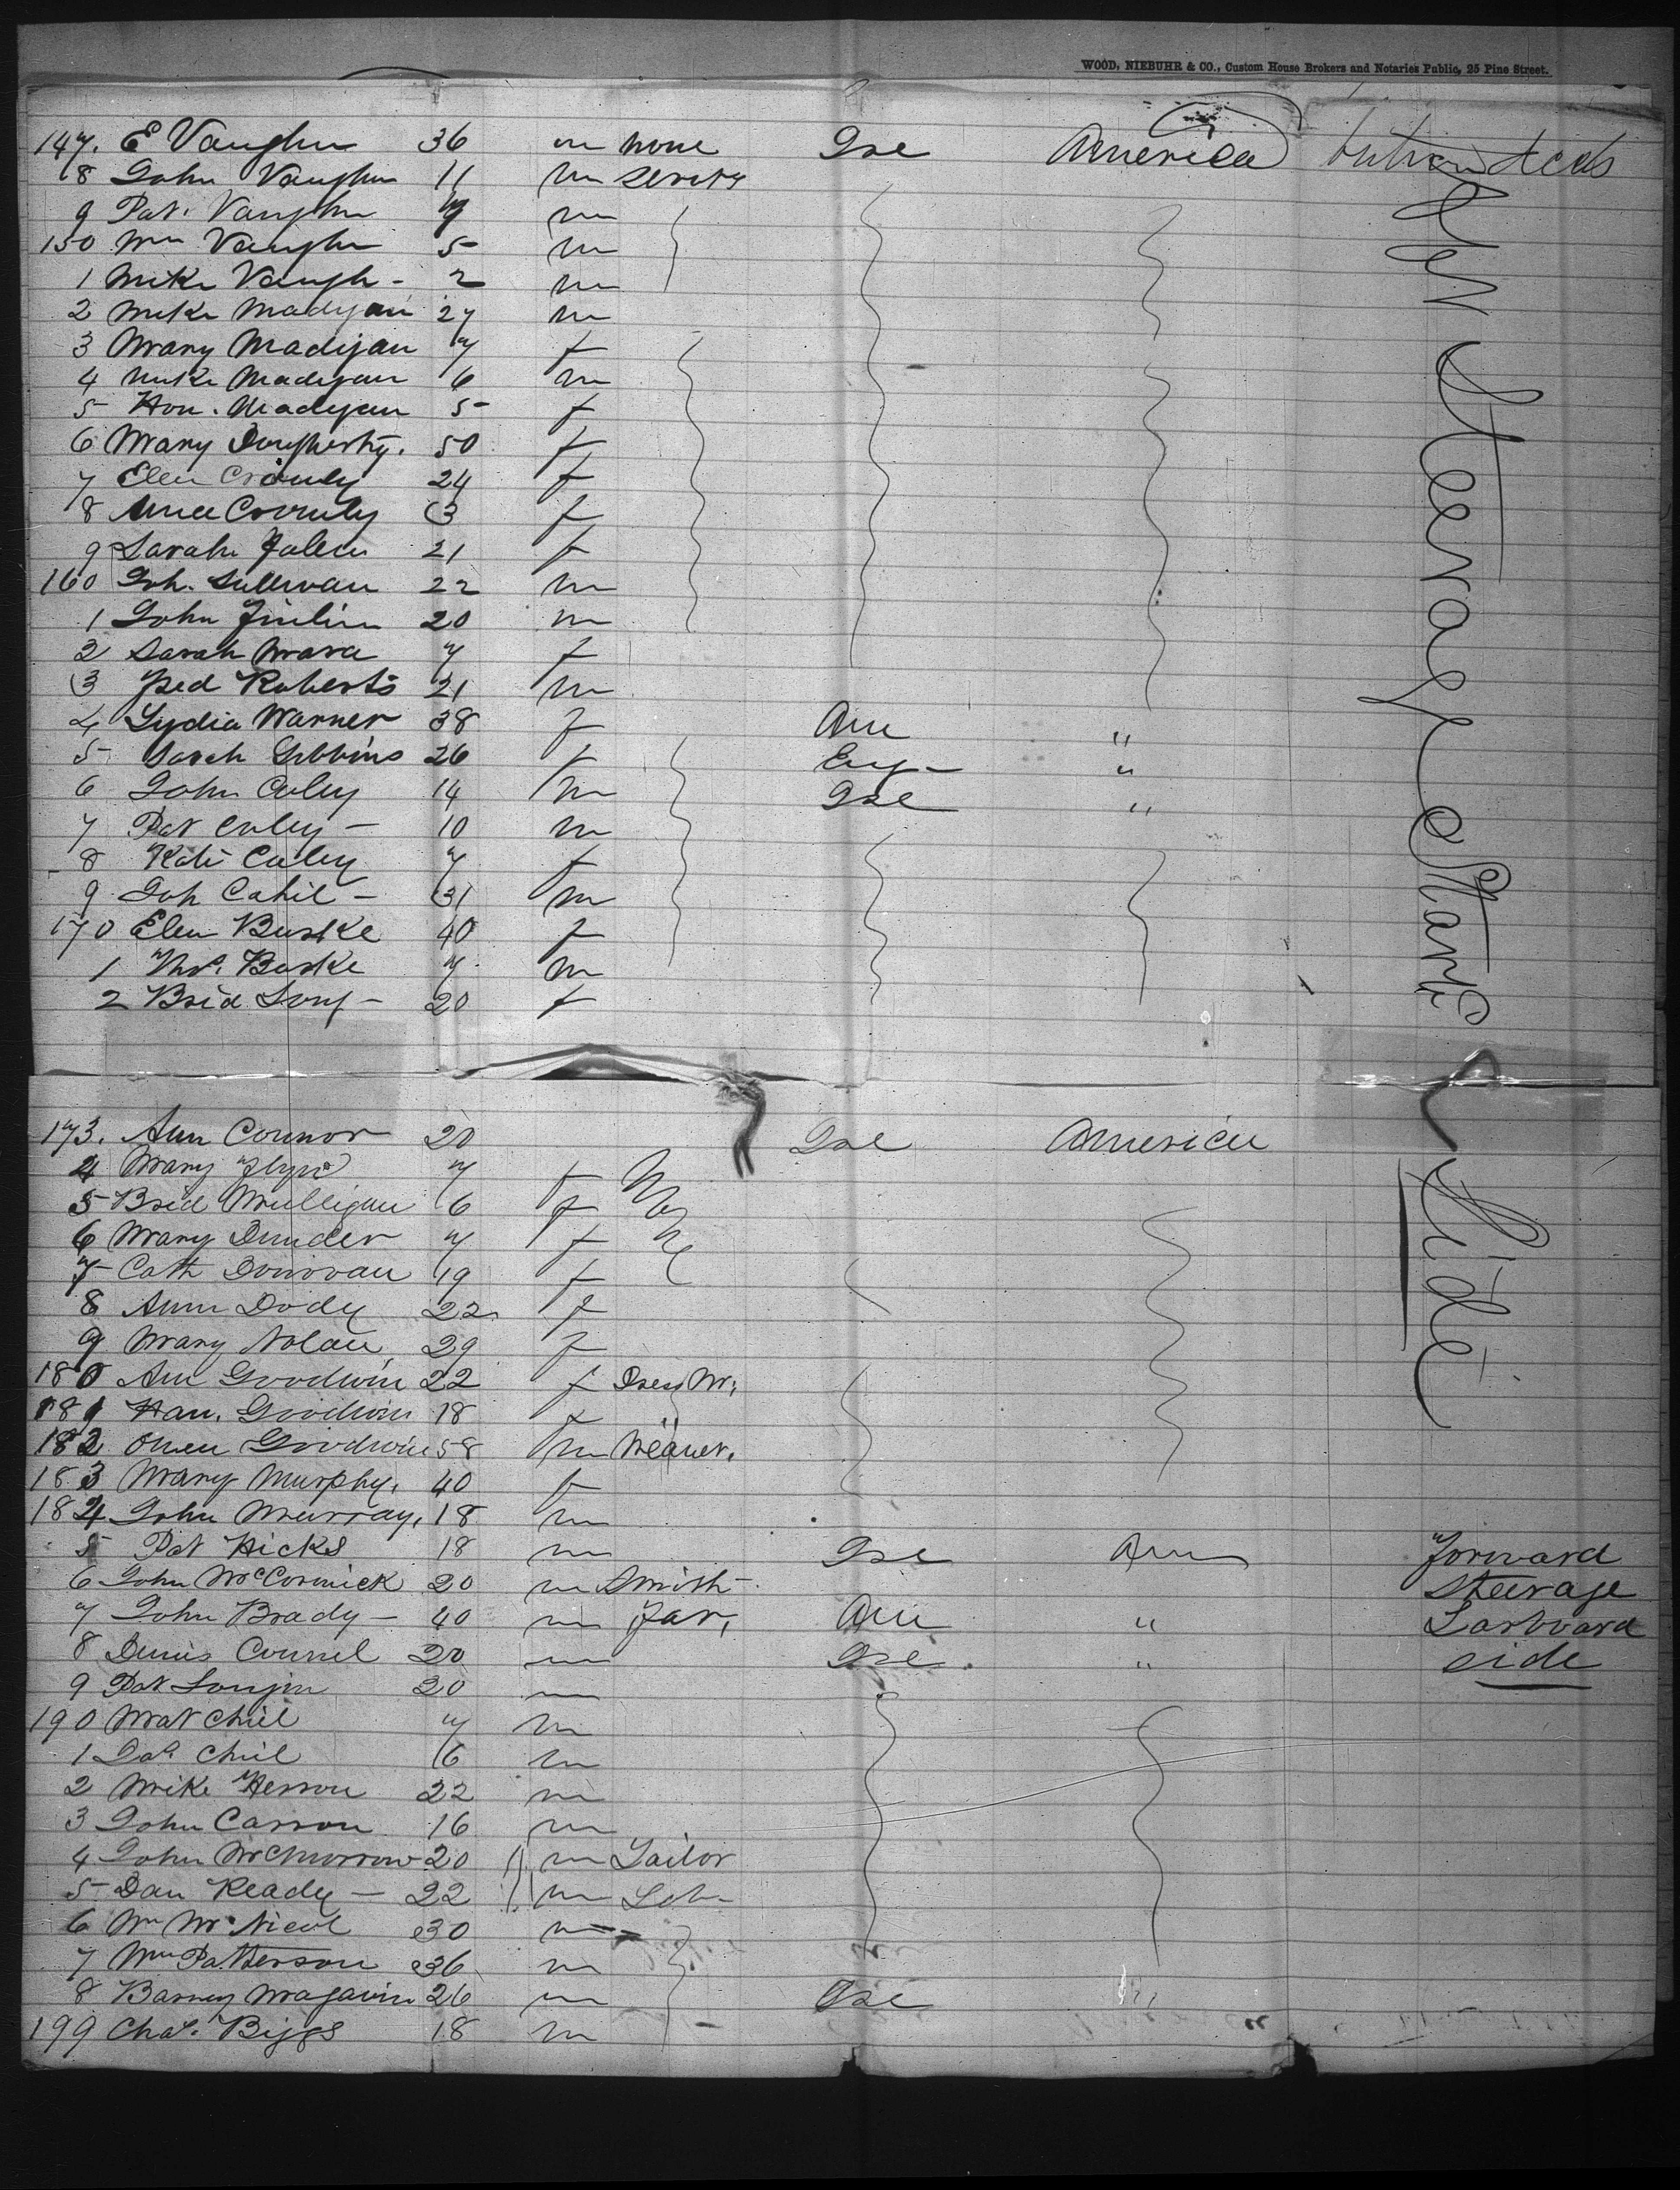 WOOD, NIEBUHR & CO., Custom House Brokers and Notaries Public, 25 Pine Street.
147. E Vaughn 36 m none Ire America between decks
8 John Vaughn 11 m
9 Pat. Vaughn m
150 Wm Vaughn 5 m
1 Mike Vaugh - 2 m
2 Mike Madigan 27 m
3 Mary Madigan 7 f
4 Mike Madigan 6 m
5 Hon. Madigan 5 f
6 Mary Dougherty. 50 f
7 Ellen Cromly 24 f
8 Anne Cromly 3 f
9 Sarah 21 f
160 Joh. Sullivan 22 m
1 John 20 m
2 Sarah Mara 7 f
3 Fred Roberts 21 m
4 Lydia Warner 38 f Am "
5 Sarah Gibbins 26 f Eng - "
6 John Culey 14 m Ire "
7 Pat Culey - 10 m
8 Kate Culey 7 f
9 Joh Cahil - 31 m
170 Elen Burke 40 f
1 Thos. Burke 7 m
2 Brid Long - 20 f
Steerage Starb Side
173. Ann Connor 20 Ire America
4 Mary Flyn 7 f
5 Brid Mulligan 6 f
6 Mary Dunden 7 f
7 Cath Donovan 19 f
8 Ann Dody 22 f
9 Mary Nolan 29 f
180 Ann Goodwin 22 f Dress M.
181 Han. Goodwin 18 f "
182 Owen Goodwin 58 m Weaver.
183 Mary Murphy. 40 f
184 John Murray. 18 m
5 Pat Hicks 18 m Ire Am Forward
6 John McCormick 20 m Smith - Steerage
7 John Brady - 40 m Far. Am " Larboard
8 Dennis Connel 20 m Ire " side
9 Pat 20 m
190 Mat Chiel 7 m
1 Chiel 6 m
2 Mike Herron 22 m
3 John Carson 16 m
4 John McMorrow 20 m Tailor
5 Dan Ready - 22 m Lab
6 Wm McNicol 30 m
7 Wm Patterson 36 m
8 Barney Magavin 26 m Ire "
199 Chas. Biggs 18 m "